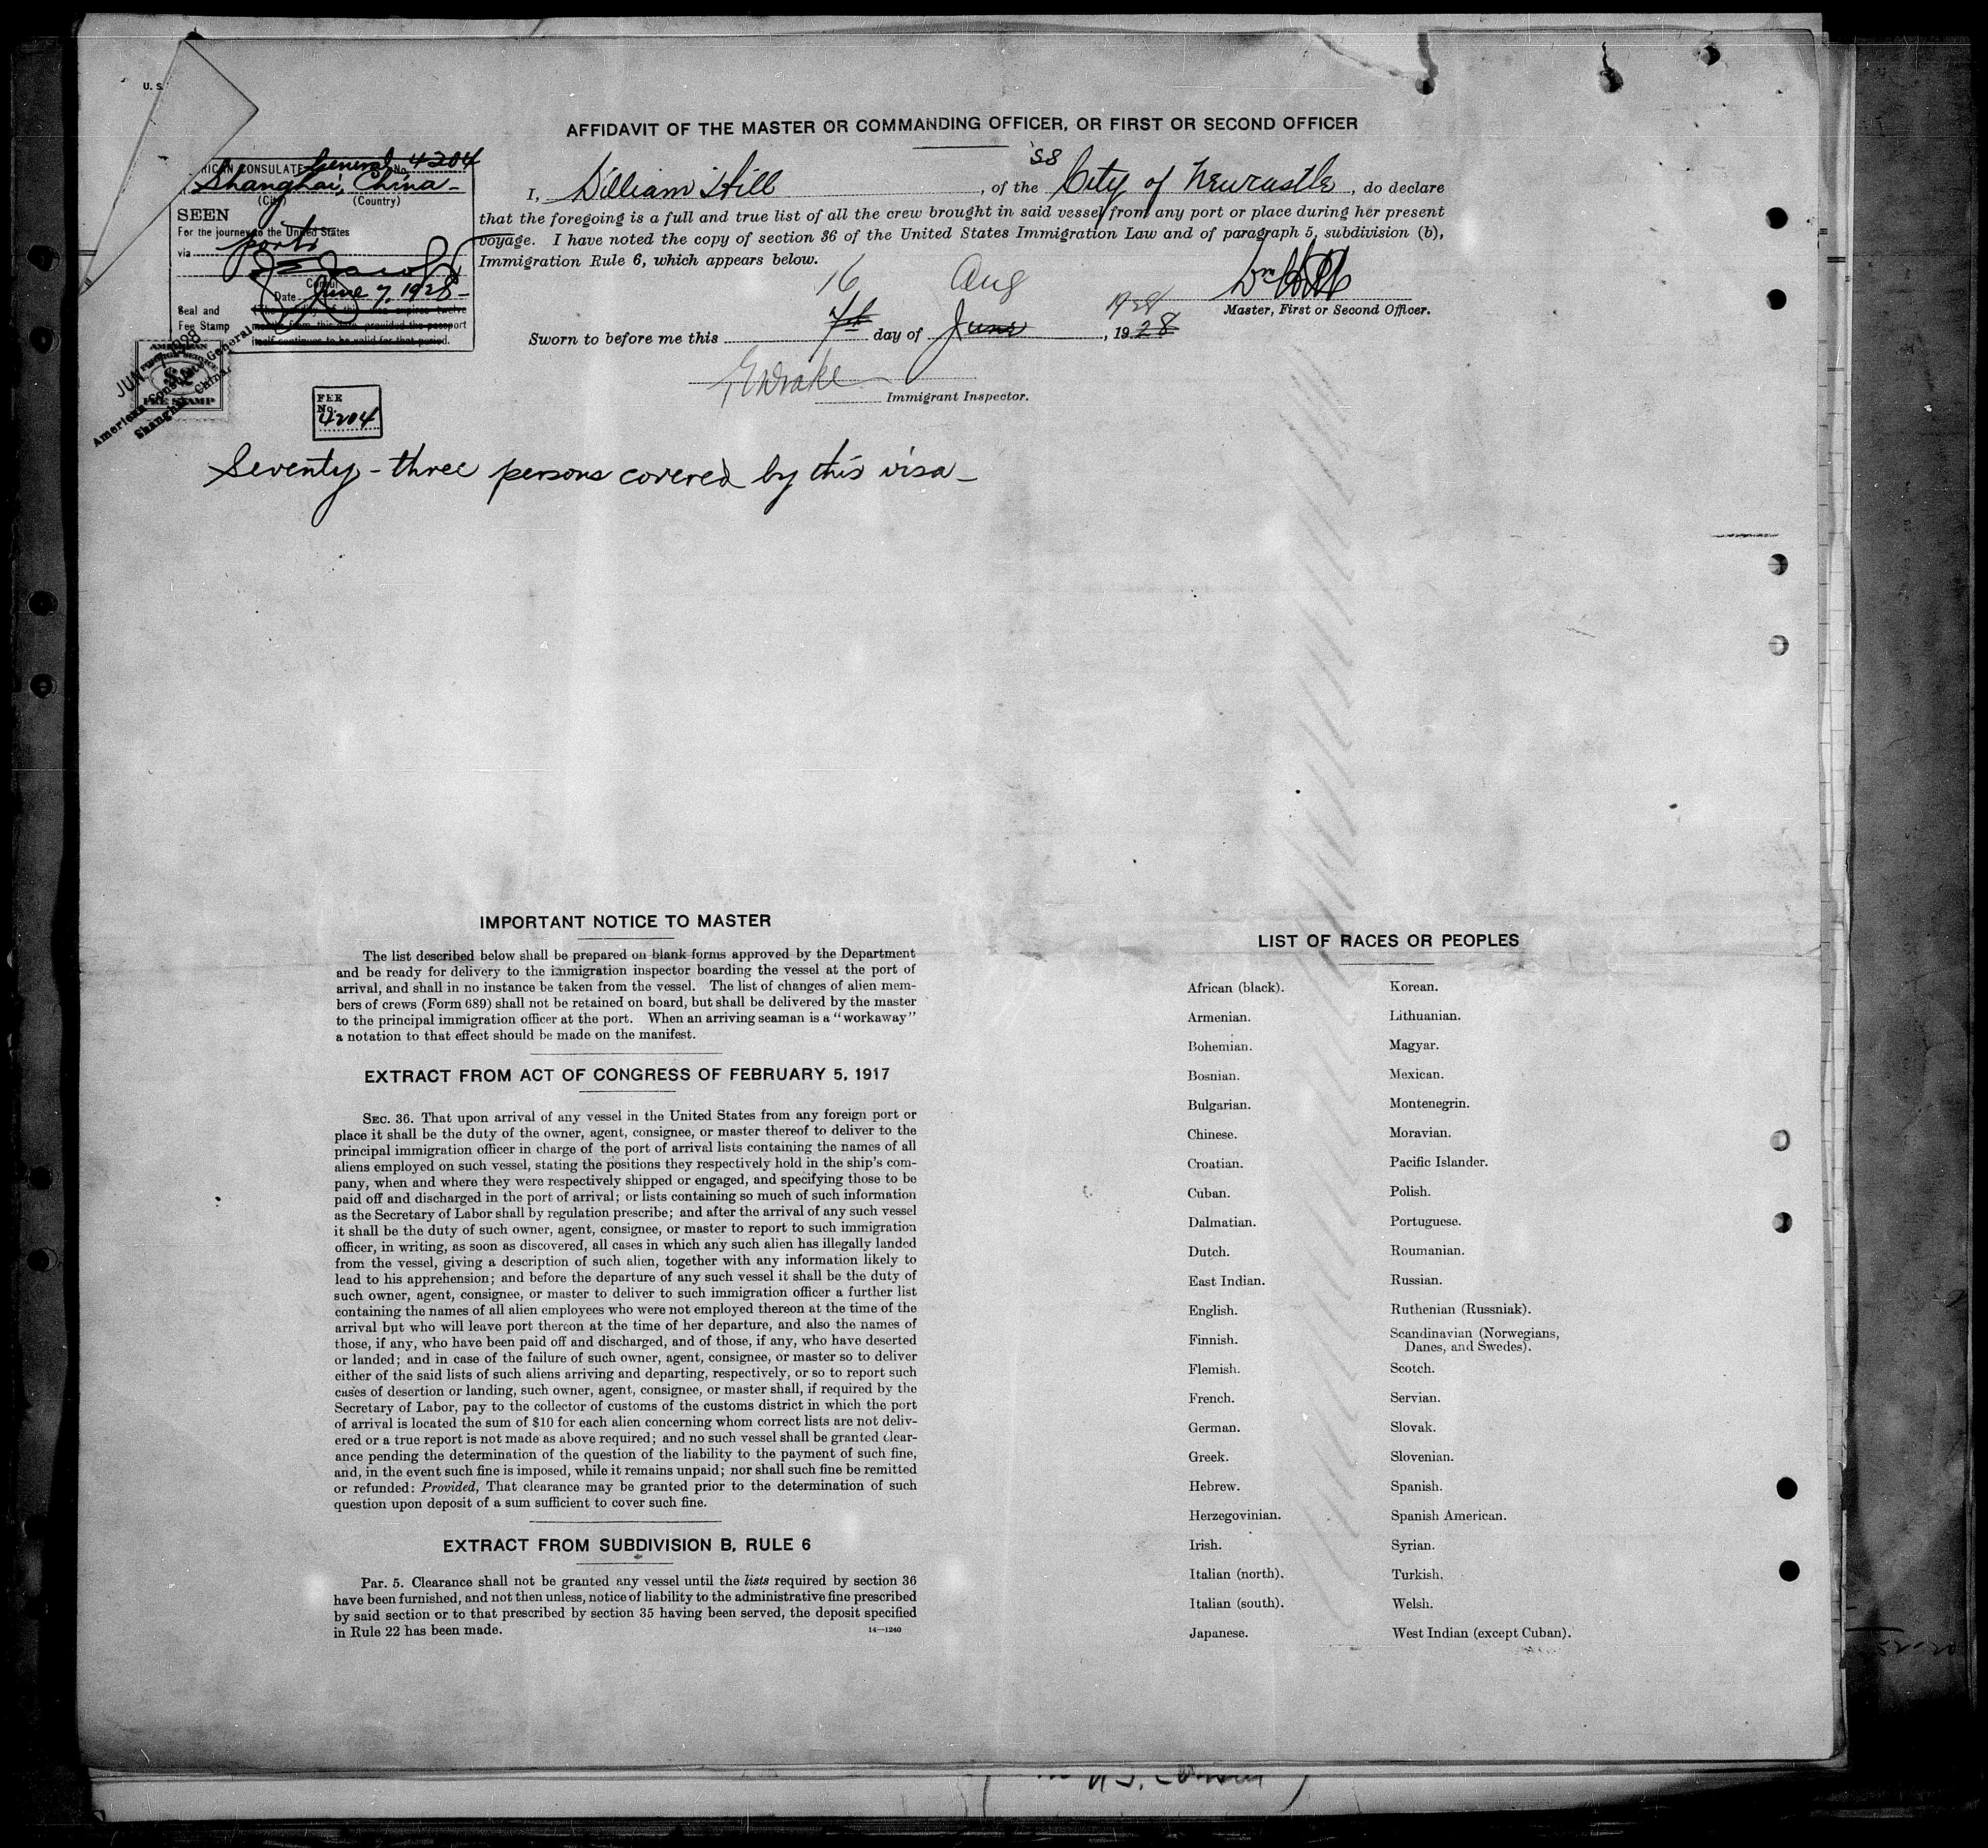 U. S.
AFFIDAVIT OF THE MASTER OR COMMANDING OFFICER, OR FIRST OR SECOND OFFICER
RICAN CONSULATE General No. 4204
Shanghai, China -
(City) (Country)
SEEN
For the journey to the United States
via ports
Consul
Date June 7, 1928 -
Seal and
Fee Stamp
The validity of this visa expires twelve
months from this date, provided the passport
itself continues to be valid for that period.
JUN 7 1928
American Consulate General
Shanghai, China.
AMERICAN
FEE STAMP
FEE
No.
4204
I, William Hill, of the SS City of Newcastle, do declare
that the foregoing is a full and true list of all the crew brought in said vessel from any port or place during her present
voyage. I have noted the copy of section 36 of the United States Immigration Law and of paragraph 5, subdivision (b),
Immigration Rule 6, which appears below.
Wm Hill
Master, First or Second Officer.
16 Aug 1928
Sworn to before me this 7th day of June, 1928
Immigrant Inspector.
Seventy-three persons covered by this visa -
IMPORTANT NOTICE TO MASTER
The list described below shall be prepared on blank forms approved by the Department
and be ready for delivery to the immigration inspector boarding the vessel at the port of
arrival, and shall in no instance be taken from the vessel. The list of changes of alien mem-
bers of crews (Form 689) shall not be retained on board, but shall be delivered by the master
to the principal immigration officer at the port. When an arriving seaman is a "workaway"
a notation to that effect should be made on the manifest.
EXTRACT FROM ACT OF CONGRESS OF FEBRUARY 5, 1917
SEC. 36. That upon arrival of any vessel in the United States from any foreign port or
place it shall be the duty of the owner, agent, consignee, or master thereof to deliver to the
principal immigration officer in charge of the port of arrival lists containing the names of all
aliens employed on such vessel, stating the positions they respectively hold in the ship's com-
pany, when and where they were respectively shipped or engaged, and specifying those to be
paid off and discharged in the port of arrival; or lists containing so much of such information
as the Secretary of Labor shall by regulation prescribe; and after the arrival of any such vessel
it shall be the duty of such owner, agent, consignee, or master to report to such immigration
officer, in writing, as soon as discovered, all cases in which any such alien has illegally landed
from the vessel, giving a description of such alien, together with any information likely to
lead to his apprehension; and before the departure of any such vessel it shall be the duty of
such owner, agent, consignee, or master to deliver to such immigration officer a further list
containing the names of all alien employees who were not employed thereon at the time of the
arrival but who will leave port thereon at the time of her departure, and also the names of
those, if any, who have been paid off and discharged, and of those, if any, who have deserted
or landed; and in case of the failure of such owner, agent, consignee, or master so to deliver
either of the said lists of such aliens arriving and departing, respectively, or so to report such
cases of desertion or landing, such owner, agent, consignee, or master shall, if required by the
Secretary of Labor, pay to the collector of customs of the customs district in which the port
of arrival is located the sum of $10 for each alien concerning whom correct lists are not deliv-
ered or a true report is not made as above required; and no such vessel shall be granted clear-
ance pending the determination of the question of the liability to the payment of such fine,
and, in the event such fine is imposed, while it remains unpaid; nor shall such fine be remitted
or refunded: Provided, That clearance may be granted prior to the determination of such
question upon deposit of a sum sufficient to cover such fine.
EXTRACT FROM SUBDIVISION B, RULE 6
Par. 5. Clearance shall not be granted any vessel until the lists required by section 36
have been furnished, and not then unless, notice of liability to the administrative fine prescribed
by said section or to that prescribed by section 35 having been served, the deposit specified
in Rule 22 has been made.
14—1240
LIST OF RACES OR PEOPLES
African (black).
Armenian.
Bohemian.
Bosnian.
Bulgarian.
Chinese.
Croatian.
Cuban.
Dalmatian.
Dutch.
East Indian.
English.
Finnish.
Flemish.
French.
German.
Greek.
Hebrew.
Herzegovinian.
Irish.
Italian (north).
Italian (south).
Japanese.
Korean.
Lithuanian.
Magyar.
Mexican.
Montenegrin.
Moravian.
Pacific Islander.
Polish.
Portuguese.
Roumanian.
Russian.
Ruthenian (Russniak).
Scandinavian (Norwegians,
Danes, and Swedes).
Scotch.
Servian.
Slovak.
Slovenian.
Spanish.
Spanish American.
Syrian.
Turkish.
Welsh.
West Indian (except Cuban).